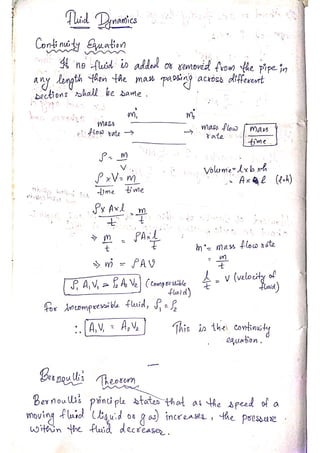 Fluid Dynamics
Continuity Equation
If no fluid is added or removed from the pipe in
any length then the mass passing across different
sections shall be same.
ṁ₁ ṁ₂
mass flow rate → → mass flow rate mass/time
ρ = m/V
Volume = l×b×h
ρ×V/time = m/time
= A×l (l=h)
ρ×A×l/t = m/t
⇒ m/t = ρA×l/t
ṁ = mass flow rate
= m/t
⇒ ṁ = ρAV
l/t = V (velocity of fluid)
ρ₁A₁V₁ = ρ₂A₂V₂ (compressible fluid)
for incompressible fluid, ρ₁ = ρ₂
∴ A₁V₁ = A₂V₂ This is the continuity equation.
Bernoullis Theorem
Bernoullis principle states that as the speed of a
moving fluid (liquid or gas) increases, the pressure
within the fluid decreases.